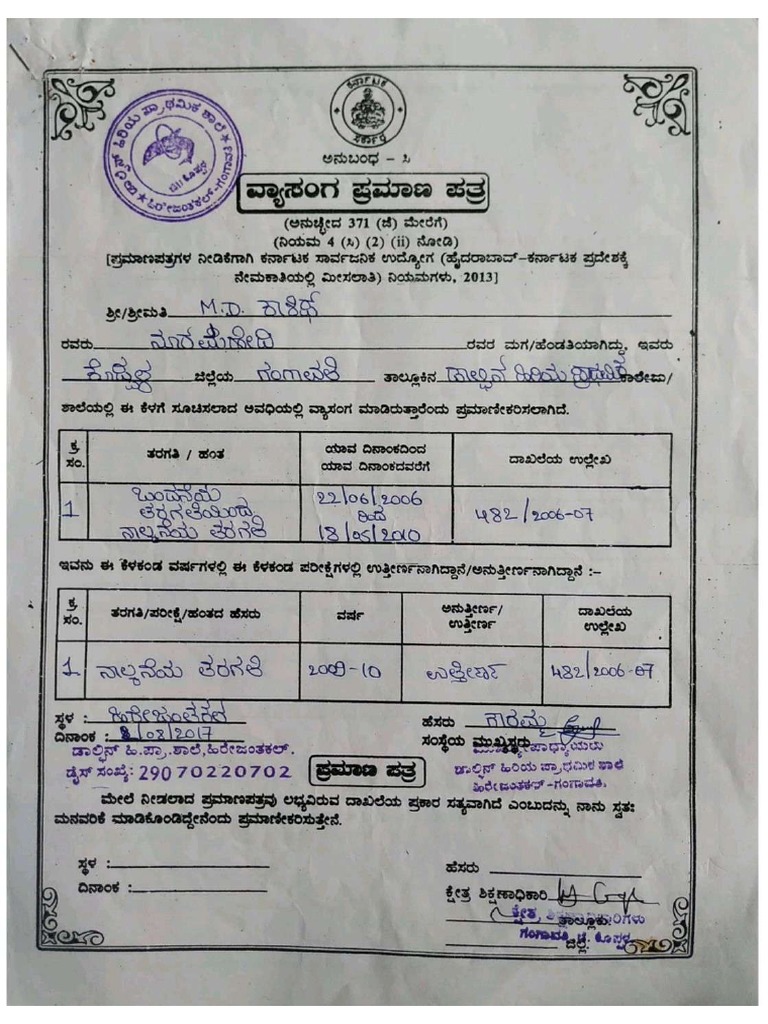 ಕರ್ನಾಟಕ
ಸರ್ಕಾರ
ಹಿರಿಯ ಪ್ರಾಥಮಿಕ ಶಾಲೆ
ಹಿರೇಜಂತಕಲ್-ಗಂಗಾವತಿ
ಅನುಬಂಧ – ಸಿ
ವ್ಯಾಸಂಗ ಪ್ರಮಾಣ ಪತ್ರ
(ಅನುಚ್ಛೇದ 371 (ಜೆ) ಮೇರೆಗೆ)
(ನಿಯಮ 4 (ಸಿ) (2) (ii) ನೋಡಿ)
[ಪ್ರಮಾಣಪತ್ರಗಳ ನೀಡಿಕೆಗಾಗಿ ಕರ್ನಾಟಕ ಸಾರ್ವಜನಿಕ ಉದ್ಯೋಗ (ಹೈದರಾಬಾದ್-ಕರ್ನಾಟಕ ಪ್ರದೇಶಕ್ಕೆ
ನೇಮಕಾತಿಯಲ್ಲಿ ಮೀಸಲಾತಿ) ನಿಯಮಗಳು, 2013]
ಶ್ರೀ/ಶ್ರೀಮತಿ M.D.
ರವರು ರವರ ಮಗ/ಹೆಂಡತಿಯಾಗಿದ್ದು, ಇವರು
ಕೊಪ್ಪಳ ಜಿಲ್ಲೆಯ ಗಂಗಾವತಿ ತಾಲ್ಲೂಕಿನ ಡಾಲ್ಫಿನ ಹಿರಿಯ ಪ್ರಾಥಮಿಕ ಕಾಲೇಜು/
ಶಾಲೆಯಲ್ಲಿ ಈ ಕೆಳಗೆ ಸೂಚಿಸಲಾದ ಅವಧಿಯಲ್ಲಿ ವ್ಯಾಸಂಗ ಮಾಡಿರುತ್ತಾರೆಂದು ಪ್ರಮಾಣೀಕರಿಸಲಾಗಿದೆ.
ಕ್ರ. ಸಂ. ತರಗತಿ / ಹಂತ ಯಾವ ದಿನಾಂಕದಿಂದ ಯಾವ ದಿನಾಂಕದವರೆಗೆ ದಾಖಲೆಯ ಉಲ್ಲೇಖ
1 ಒಂದನೆಯ ತರಗತಿಯಿಂದ ನಾಲ್ಕನೆಯ ತರಗತಿ 22/06/2006 ರಿಂದ 18/05/2010 482/2006-07
ಇವನು ಈ ಕೆಳಕಂಡ ವರ್ಷಗಳಲ್ಲಿ ಈ ಕೆಳಕಂಡ ಪರೀಕ್ಷೆಗಳಲ್ಲಿ ಉತ್ತೀರ್ಣನಾಗಿದ್ದಾನೆ/ಅನುತ್ತೀರ್ಣನಾಗಿದ್ದಾನೆ :–
ಕ್ರ. ಸಂ. ತರಗತಿ/ಪರೀಕ್ಷೆ/ಹಂತದ ಹೆಸರು ವರ್ಷ ಅನುತ್ತೀರ್ಣ/ ಉತ್ತೀರ್ಣ ದಾಖಲೆಯ ಉಲ್ಲೇಖ
1 ನಾಲ್ಕನೆಯ ತರಗತಿ 2009-10 ಉತ್ತೀರ್ಣ 482/2006-07
ಸ್ಥಳ : ಹಿರೇಜಂತಕಲ ಹೆಸರು
ದಿನಾಂಕ : /08/2017 ಸಂಸ್ಥೆಯ ಮುಖ್ಯಸ್ಥರು
ಡಾಲ್ಫಿನ್ ಹಿ.ಪ್ರಾ.ಶಾಲೆ,ಹಿರೇಜಂತಕಲ್.
ಡೈಸ್ ಸಂಖ್ಯೆ: 29070220702
ಡಾಲ್ಫಿನ್ ಹಿರಿಯ ಪ್ರಾಥಮಿಕ ಶಾಲೆ
ಹಿರೇಜಂತಕಲ್-ಗಂಗಾವತಿ.
ಪ್ರಮಾಣ ಪತ್ರ
ಮೇಲೆ ನೀಡಲಾದ ಪ್ರಮಾಣಪತ್ರವು ಲಭ್ಯವಿರುವ ದಾಖಲೆಯ ಪ್ರಕಾರ ಸತ್ಯವಾಗಿದೆ ಎಂಬುದನ್ನು ನಾನು ಸ್ವತಃ
ಮನವರಿಕೆ ಮಾಡಿಕೊಂಡಿದ್ದೇನೆಂದು ಪ್ರಮಾಣೀಕರಿಸುತ್ತೇನೆ.
ಸ್ಥಳ : ಹೆಸರು
ದಿನಾಂಕ : ಕ್ಷೇತ್ರ ಶಿಕ್ಷಣಾಧಿಕಾರಿ
ಕ್ಷೇತ್ರ ಶಿಕ್ಷಣಾಧಿಕಾರಿಗಳು
ತಾಲ್ಲೂಕು.
ಗಂಗಾವತಿ ಜಿ. ಕೊಪ್ಪಳ
ಜಿಲ್ಲೆ.